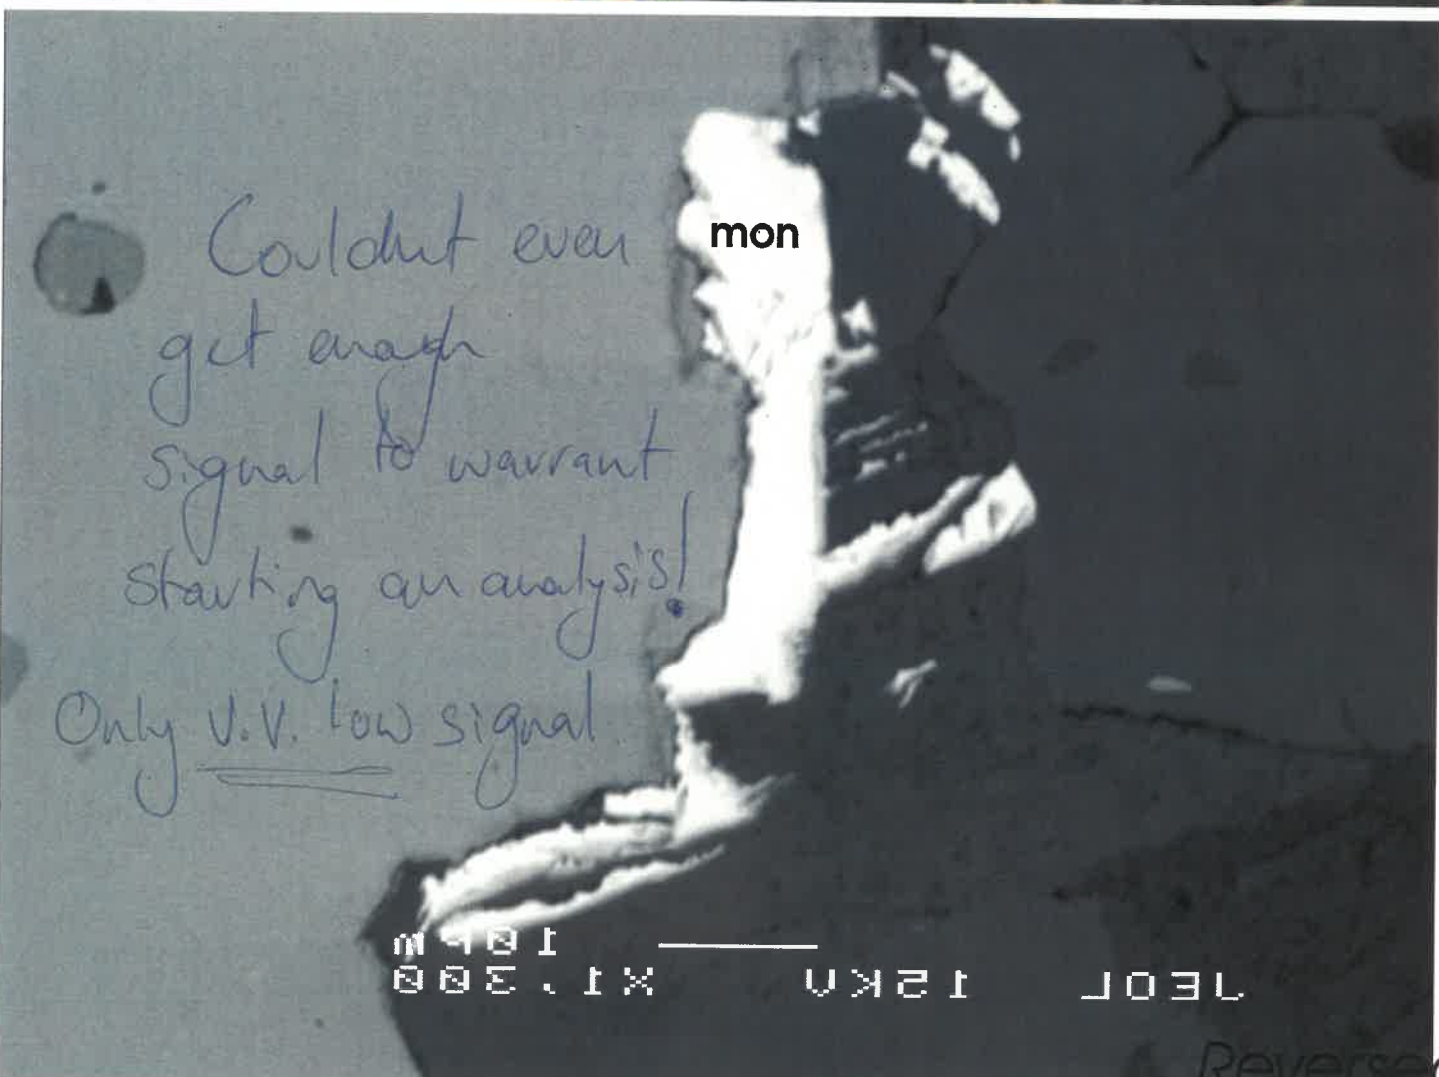 Couldnt even
mon
get enough
signal to warrant
starting an analysis!
Only v.v. low signal.
10µm
JEOL 15KV X1,300
Reverse